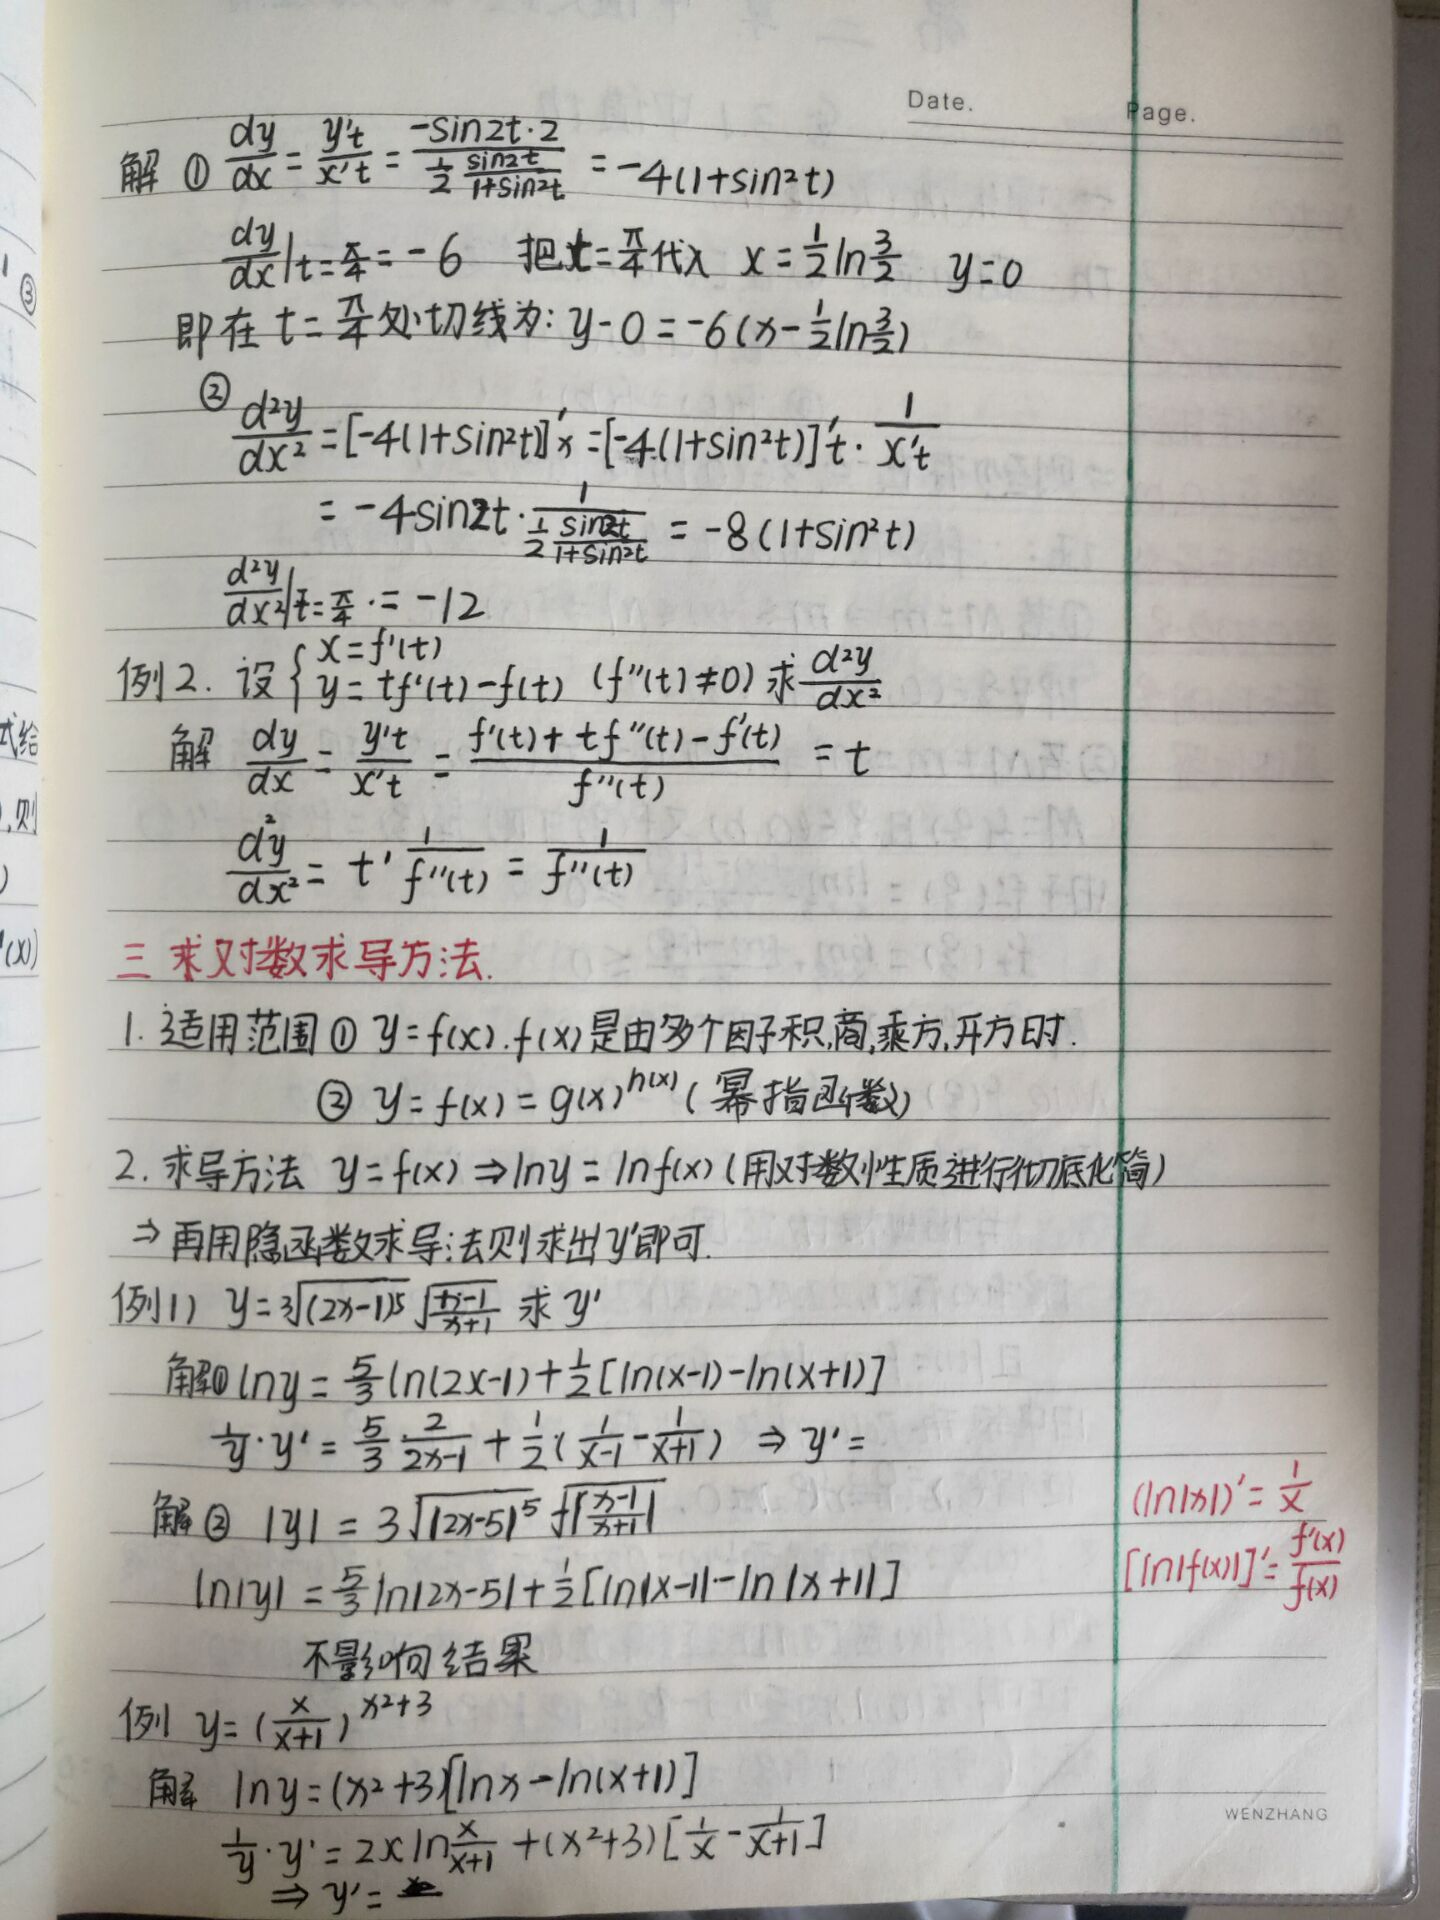 Date.
Page.
解 ① dy/dx = y't/x't = (-sin2t·2)/(1/2 sin2t/(1+sin²t)) = -4(1+sin²t)
dy/dx|t=π/4 = -6 把t=π/4代入 x=1/2ln3/2 y=0
即在t=π/4处切线为: y-0=-6(x-1/2ln3/2)
② d²y/dx² = [-4(1+sin²t)]'x = [-4(1+sin²t)]'t · 1/x't
= -4sin2t · 1/(1/2 sin2t/(1+sin²t)) = -8(1+sin²t)
d²y/dx²|t=π/4 ·= -12
例2. 设 { x=f'(t)
y=tf'(t)-f(t) (f''(t)≠0) 求 d²y/dx²
解 dy/dx = y't/x't = (f'(t)+tf''(t)-f'(t))/f''(t) = t
d²y/dx² = t' 1/f''(t) = 1/f''(t)
三 求对数求导方法.
1. 适用范围 ① y=f(x).f(x)是由多个因子积,商,乘方,开方时.
② y=f(x)=g(x)^h(x) (幂指函数)
2. 求导方法 y=f(x) ⇒ lny=lnf(x) (用对数性质进行彻底化简)
⇒ 再用隐函数求导法则求出y'即可.
例1) y=3√(2x-1)⁵ √(x-1)/(x+1) 求 y'
解① lny=5/3ln(2x-1)+1/2[ln(x-1)-ln(x+1)]
1/y·y'=5/3 2/(2x-1)+1/2(1/(x-1)-1/(x+1)) ⇒ y'=
解② |y|=3√|2x-5|⁵ √|(x-1)/(x+1)|
(ln|x|)'=1/x
ln|y|=5/3ln|2x-5|+1/2[ln|x-1|-ln|x+1|]
[ln|f(x)|]'=f'(x)/f(x)
不影响结果
例 y=(x/(x+1))^x²+3
解 lny=(x²+3)[lnx-ln(x+1)]
1/y·y'=2xln x/(x+1)+(x²+3)[1/x-1/(x+1)]
⇒ y'=
WENZHANG
③
式给
,则
)
'(x)